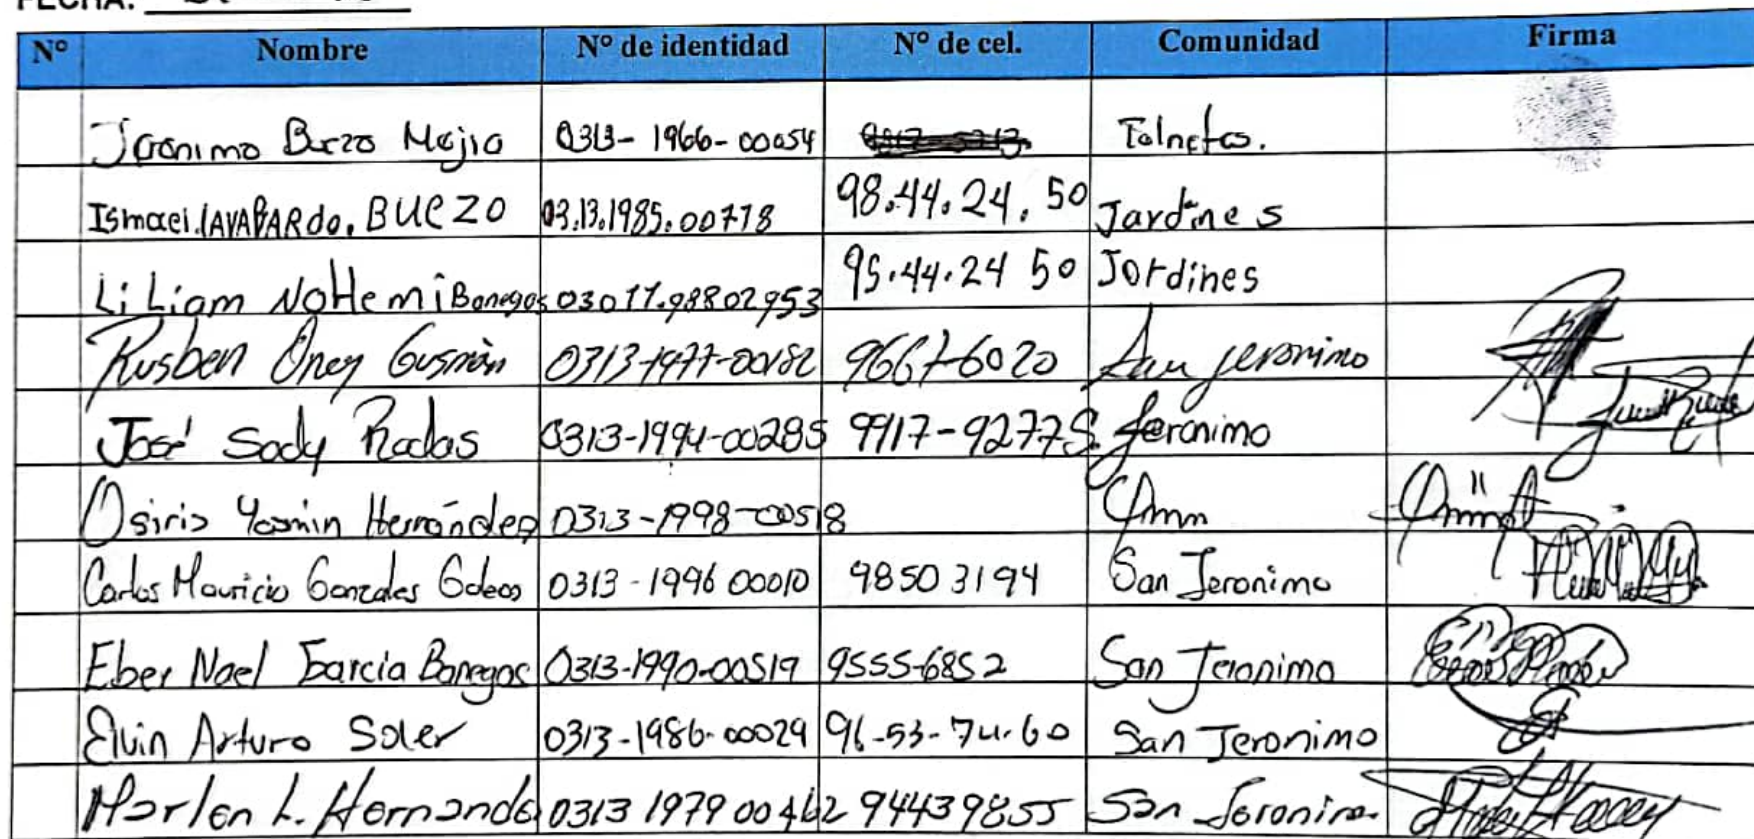 FECHA:
N° Nombre N° de identidad N° de cel. Comunidad Firma
Jeronimo Buezo Mejia 0313-1966-00054 Tolnetas.
Ismael BUEZO 03.13.1985.00778 98.44.24.50 Jardines
LiLiam NoHemi Banegas 03011.98802953 95.44.24 50 Jordines
Rusben Oney Gusmàn 0313-1977-00182 9667-6020 San jeronimo
José Sady Rodas 0313-1994-00285 9917-9277 S. Jeronimo
Osiris Yasmin Hernández 0313-1998-00518
Carlos Mauricio Gonzales Galeas 0313-1996 00010 9850 3194 San Jeronimo
Eber Nael Garcia Banegas 0313-1990-00519 9555-6852 San Jeronimo
Elvin Arturo Soler 0313-1986-00029 96-53-74-60 San Jeronimo
Marlen L. Hernande 0313 1979 00462 94439855 San Jeronimo